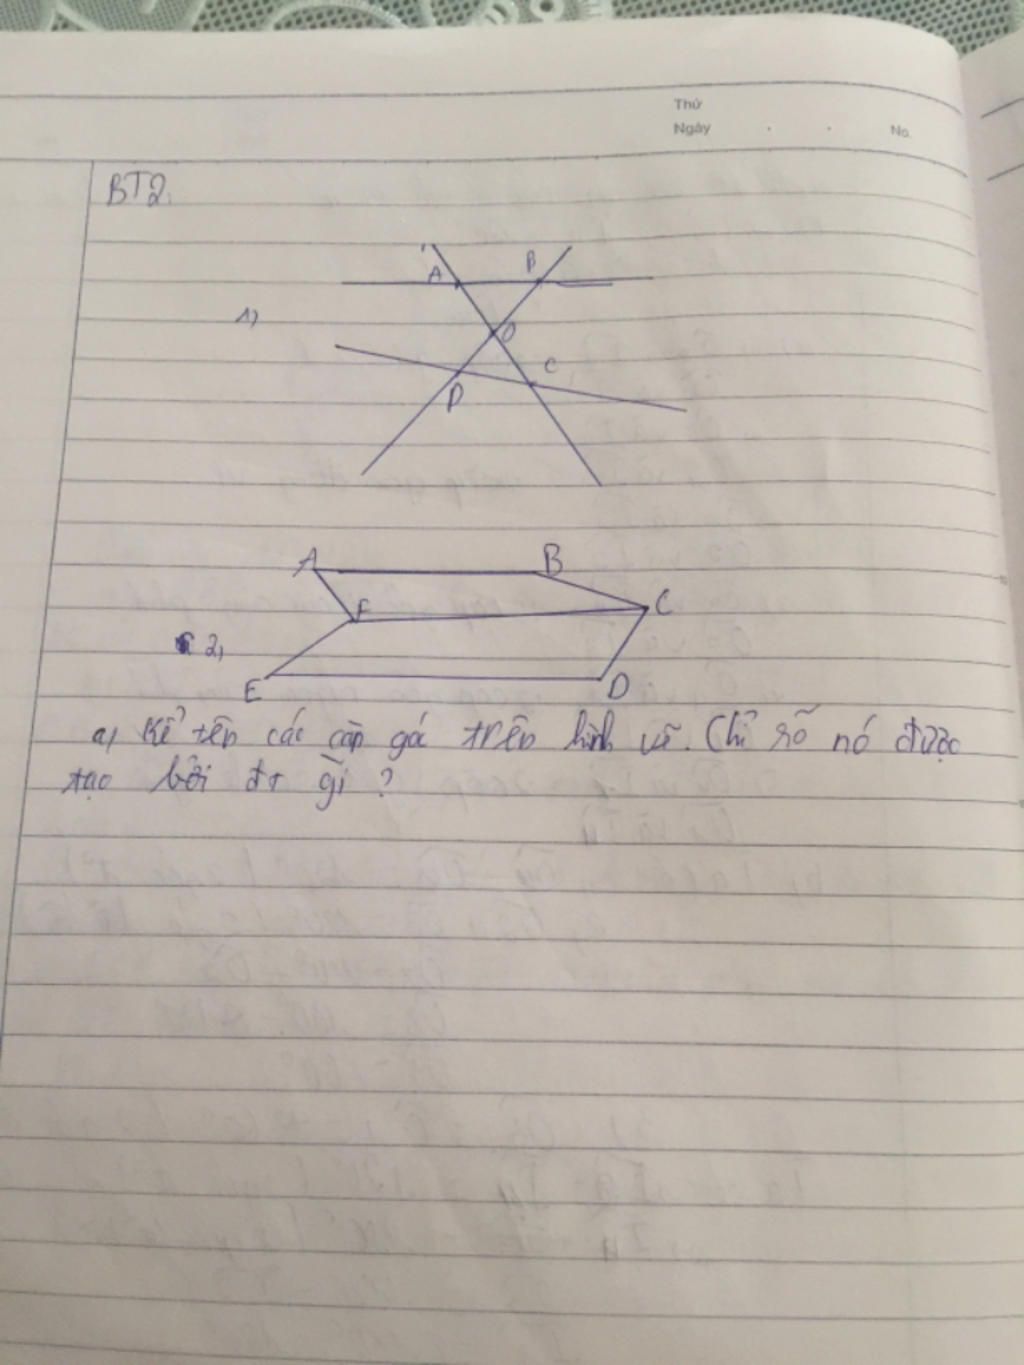 Thứ
Ngày . . No.
BT2.
A B
1)
O
C
D
A B
F C
2,
E D
a, Kể tên các cặp góc trên hình vẽ. Chỉ rõ nó được
tạo bởi đt gì ?